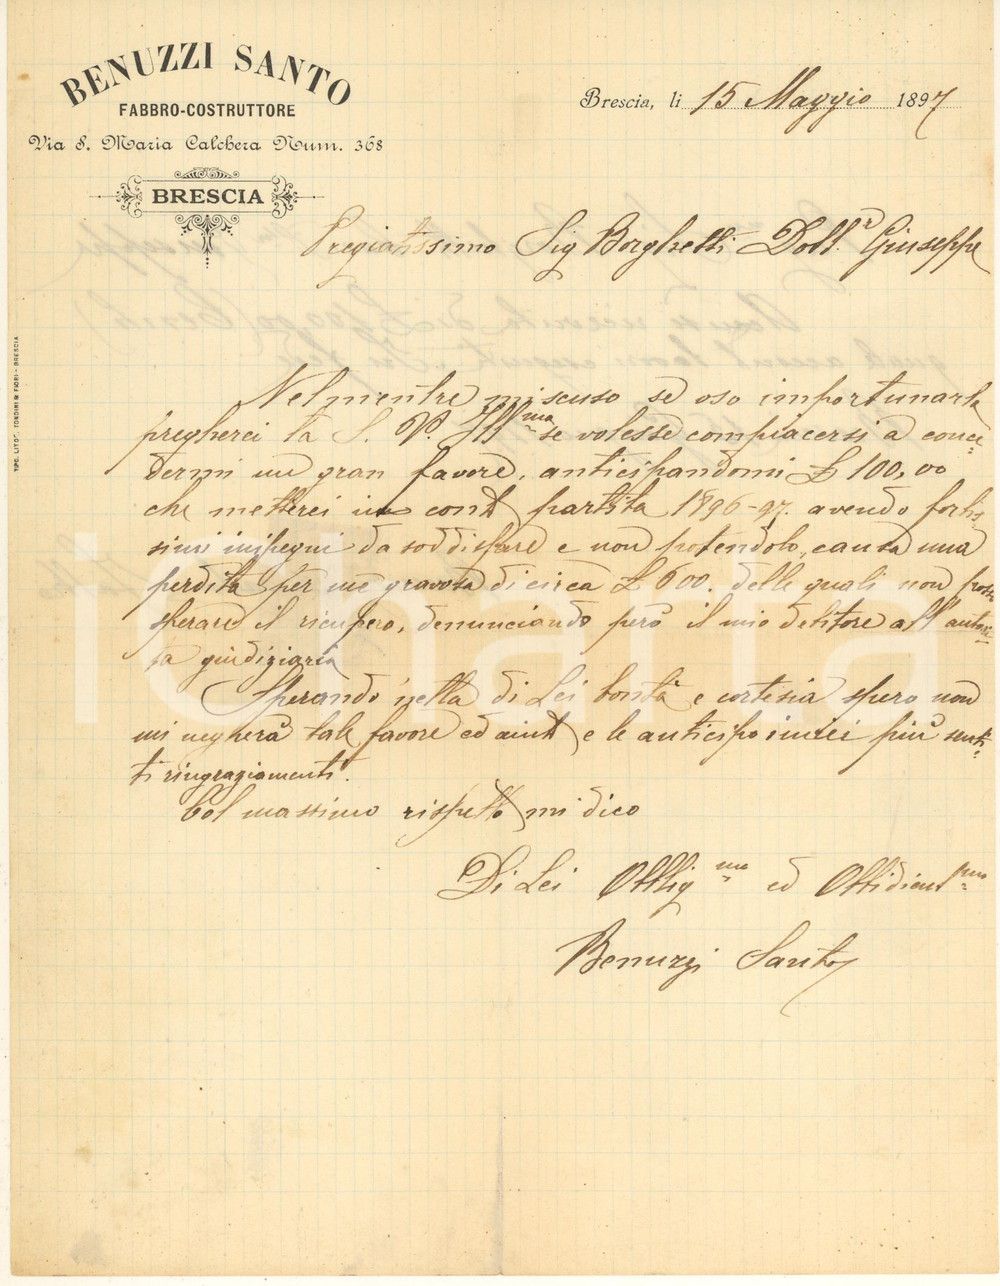 BENUZZI SANTO
FABBRO-COSTRUTTORE
Via S. Maria Calchera Num. 368
BRESCIA
Brescia, li 15 Maggio 1897
Pregiatissimo Sig Borghetti Dott.r Giuseppe
Nel mentre mi scuso se oso importunarla
pregherei la S. V. Ill.ma se volesse compiacersi a conce=
dermi un gran favore, anticipandomi £ 100,00
che metterei in cont partita 1896-97. avendo fortis=
simi impegni da soddisfare e non potendolo, causa una
perdita per me gravosa di circa £ 600. delle quali non posso
sperare il ricupero, denunciando però il mio debitore all'autori=
tà giudiziaria
Sperando nella di Lei bontà e cortesia spero non
mi negherà tale favore ed aiuto e le anticipo i miei più senti=
ti ringraziamenti.
Col massimo rispetto mi dico
Di Lei Obblig.mo ed Obbidient.mo
Benuzzi Santo
TIPO. LITOG. FONDINI & FIORI - BRESCIA
iCharta